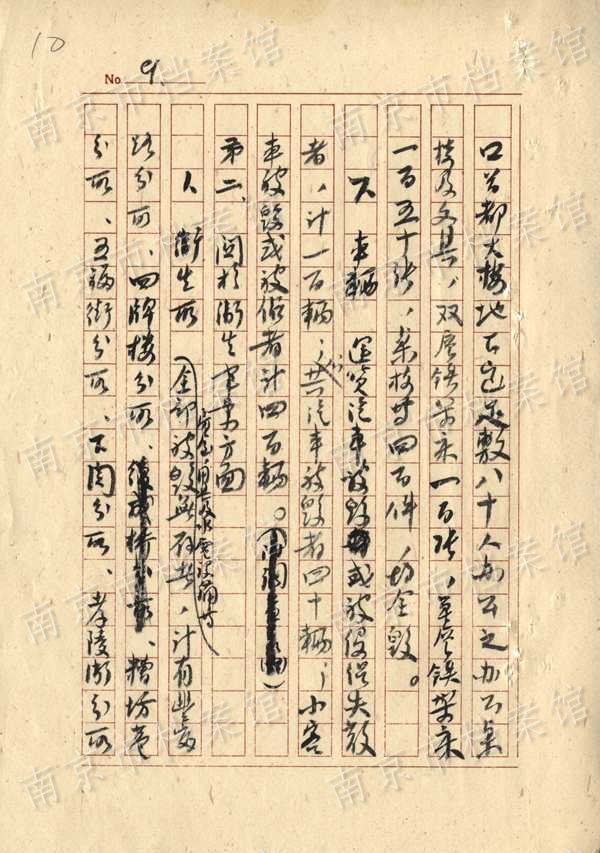 10
No 9.
口首都大楼地下室足敷八十人办公之办公桌
椅及文具，双层铁架床一百张，单层铁架床
一百五十张，桌椅等四百件，均全毁。
7、车辆 运货汽车被毁或被侵征失散
者，计一百辆，共汽车被毁者四十辆，小客
车被毁或被佔者计四百辆。
第二、关于卫生事业方面
1、卫生所（全部被毁无存者，计有
房屋自来水电设备等
路分所、四牌楼分所、糟坊巷
分所、五福街分所、下关分所、孝陵卫分所
南京市档案馆